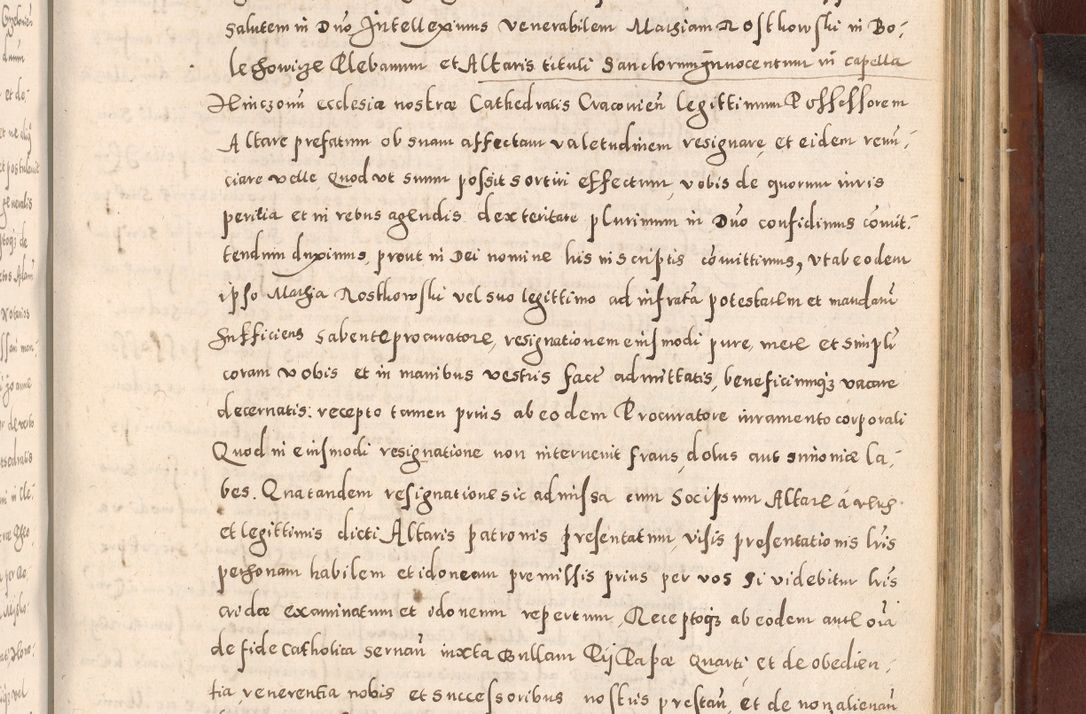 salutem in Dno Intelleximus venerabilem Mathiam Rostkowski in Bo-
lechowize Plebanum et Altaris tituli Sanctorum Innocentum in capella
Hinczoni ecclesiæ nostræ Cathedralis Cracovien legittimum Possessorem
Altare prefatum ob suam affectam valetudinem resignare, et eidem renun-
ciare velle, Quod ut suum possit sortiri effectum, vobis de quorum iuris
peritia et in rebus agendis dexteritate plurimum in Dno confidimus comit-
tendum duximus, prout in Dei nomine his in scriptis comittimus, ut ab eodem
ipso Mathia Rostkowski vel suo legittimo ad infrata potestatem et mandatu
Sufficiens habente procuratore, resignationem eiusmodi pure, mere et simpli
coram vobis et in manibus vestris fact admittatis, beneficiumq3 vacare
decernatis: recepto tamen prius ab eodem Procuratore iuramento corporali
Quod in eiusmodi resignatione non intervenit fraus, dolus aut simoniæ la-
bes. Qua tandem resignatione sic admissa eum Altare
et legittimis dicti Altaris patronis presentatum, visis presentationis lris
personam habilem et idoneam premissis prius per vos si videbitur lris
examinatum et idoneum repertum, Receptoq3 ab eodem ante oia
de fide Catholica servan iuxta Bullam Pij Papæ Quarti et de obedien-
tia, reverentia nobis et successoribus nostris prestan, et de non alienan